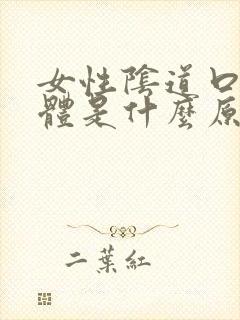 女性陰道口
體是什麼原
二葉紅